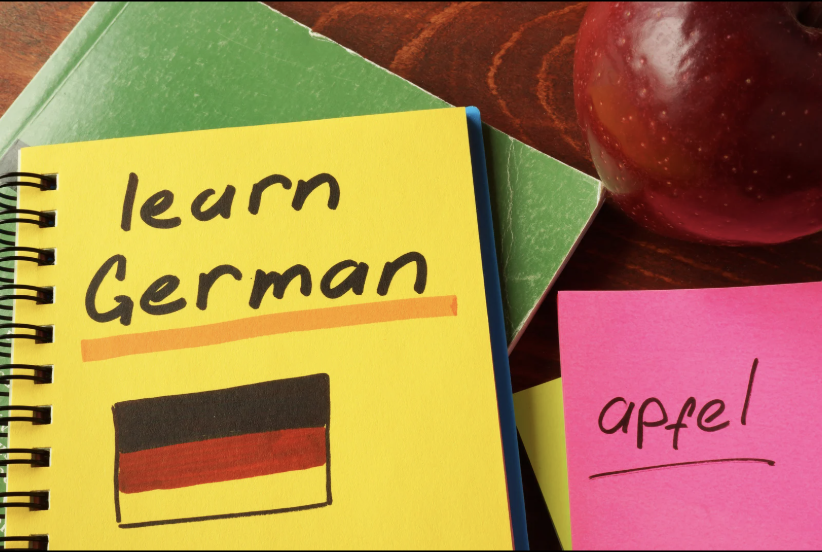 learn
German
apfel